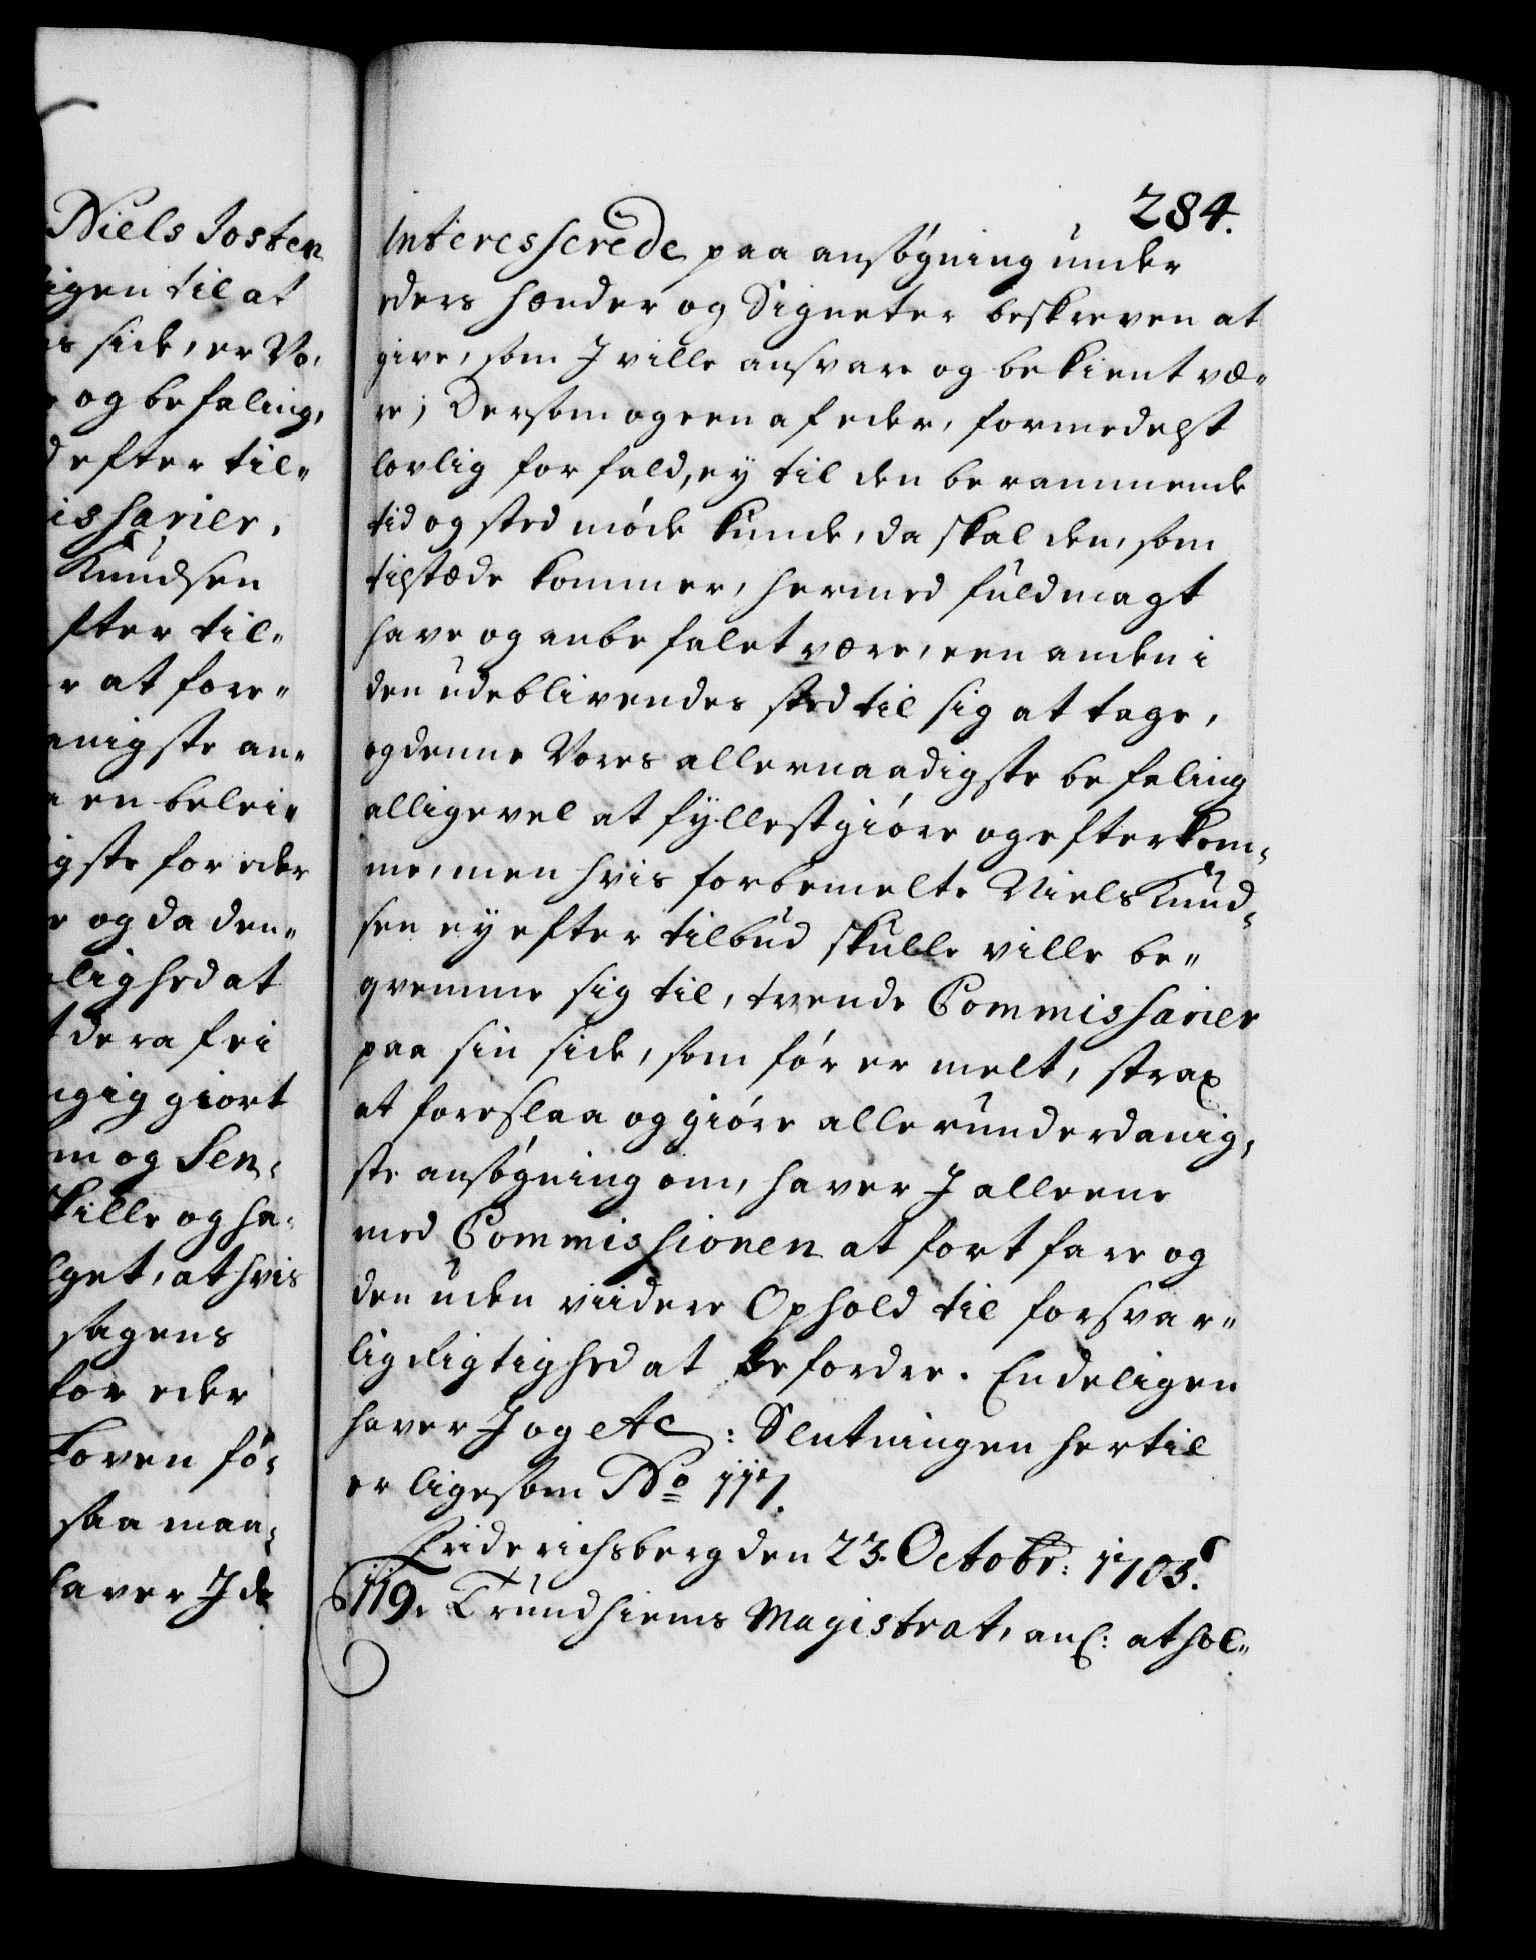 Niels Josten
igen til at
is side, er Vo,
og befaling,
efter til„
isharier,
Knudsen
fter til„
r at fore„
anigste an„
en belei„
igste for eder
og da den„
lighed at
dera frei
gig giort
m og Sen„
kille og ha„
lget, at hvis
sagens
for eder
Loven fö„
saa man„
haver I de
284.
Interesserede paa ansögning under
eders Hænder og Signeter beskreven at
give, som I ville ansvare og bekient væ„
re; Dersom og een af eder, formedelst
lovlig forfald, ey til den berammende
tid og sted möde kunde, da skal den, som
tilstæde kommer, hermed fuldmagt
have og anbefalet være, een anden i
den udeblivendes sted til sig at tage,
og denne Vores allernaadigste befaling
alligevel at fyllestgiöre og efterkom„
me, men hvis forbemelte Niels Knud„
sen ey efter tilbud skulle ville be„
qvemme sig til, tvende Commissarier
paa sin side, som för er melt, strax
at foreslaa og giöre allerunderdanig„
ste ansögning om, haver I alleene
med Commissionen at fortfare og
den uden viidere Ophold til forsvar„
lig Rigtighed at befordre. Endeligen
haver I og etc: Slutningen hertil
er ligesom No 117.
Friderichsberg den 23. Octobr: 1705.
119. Trundhiems Magistrat, anl: at hol„